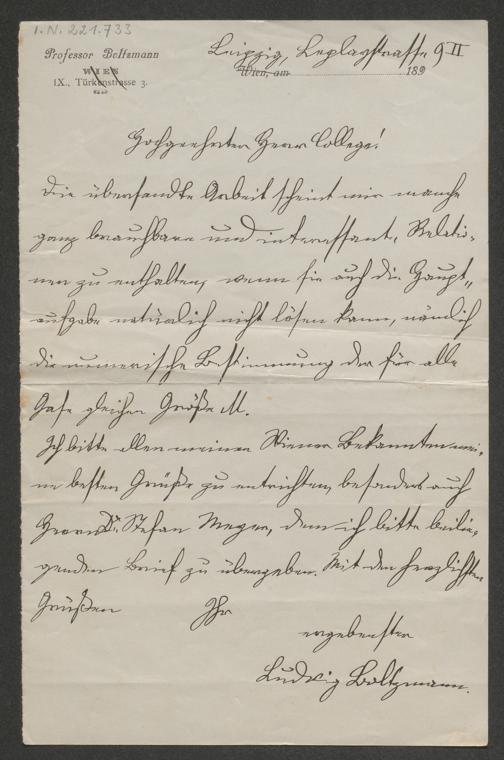 I.N. 221.733
Professor Boltzmann
WIEN
IX., Türkenstrasse 3.
Leipzig, Leplaystrasse 9 II
Wien, am 189
Hochgeehrter Herr College!
Die übersandte Arbeit scheint mir manche
ganz brauchbare und interessante Relatio-
nen zu enthalten, wenn sie auch die Haupt-
aufgabe natürlich nicht lösen kann, nämlich
die numerische Bestimmung der für alle
Gase gleichen Größe M.
Ich bitte allen meinen Wiener Bekannten mei-
ne besten Grüße zu entrichten, besonders auch
Herrn Dr. Stefan Meyer, dem ich bitte beilie-
genden Brief zu übergeben. Mit den herzlichsten
Grüßen Ihr
ergebenster
Ludwig Boltzmann.